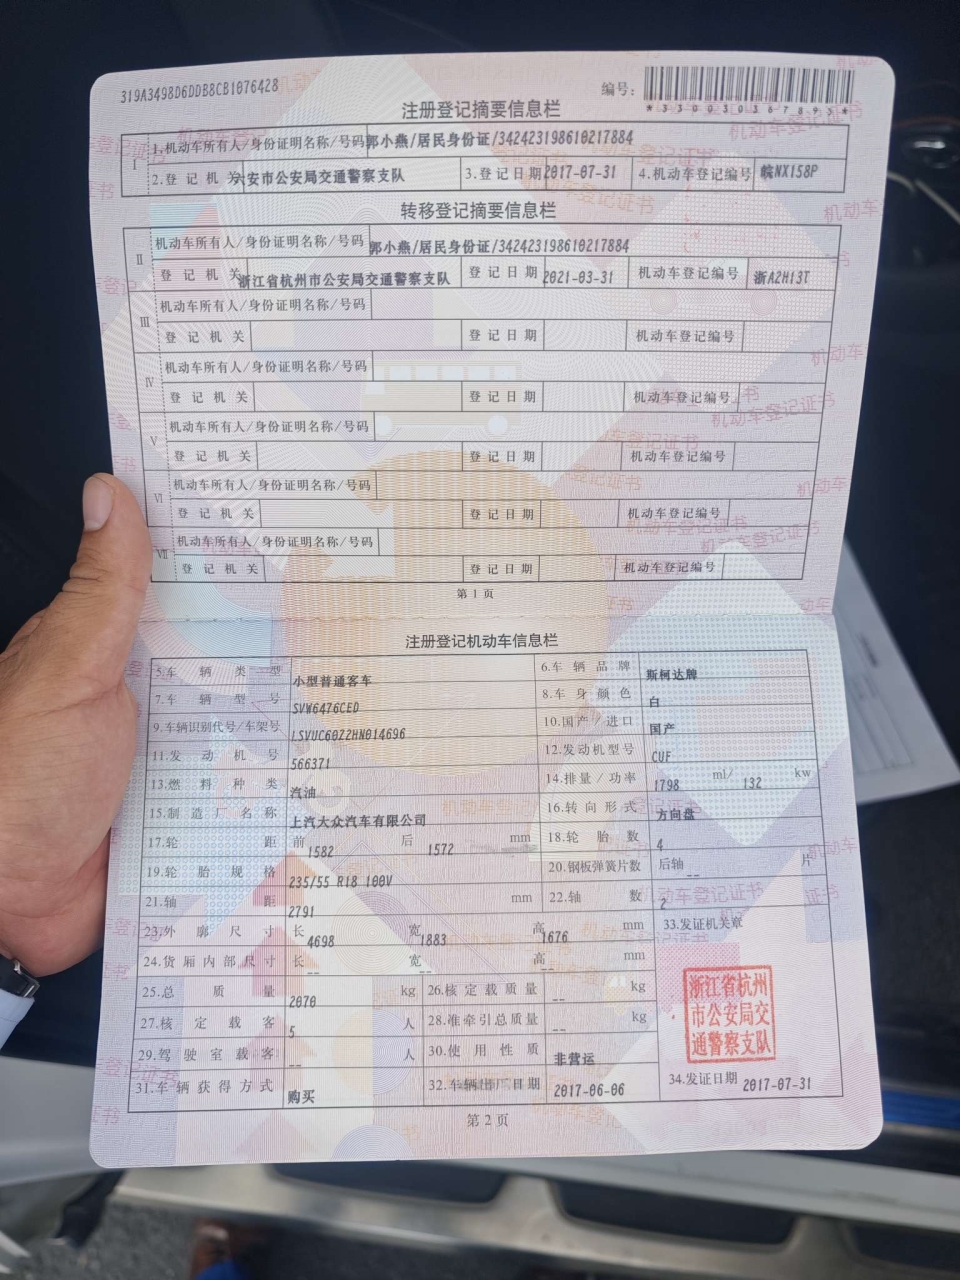 319A3498D6DDB8CB1076428
编号:
*330030367895*
注册登记摘要信息栏
I 1.机动车所有人/身份证明名称/号码 郭小燕/居民身份证/342423198610217884
2.登记机关 六安市公安局交通警察支队 3.登记日期 2017-07-31 4.机动车登记编号 皖NX158P
转移登记摘要信息栏
II 机动车所有人/身份证明名称/号码 郭小燕/居民身份证/342423198610217884
登记机关 浙江省杭州市公安局交通警察支队 登记日期 2021-03-31 机动车登记编号 浙A2H13T
III 机动车所有人/身份证明名称/号码
登记机关 登记日期 机动车登记编号
IV 机动车所有人/身份证明名称/号码
登记机关 登记日期 机动车登记编号
V 机动车所有人/身份证明名称/号码
登记机关 登记日期 机动车登记编号
VI 机动车所有人/身份证明名称/号码
登记机关 登记日期 机动车登记编号
VII 机动车所有人/身份证明名称/号码
登记机关 登记日期 机动车登记编号
第1页
注册登记机动车信息栏
5.车辆类型 小型普通客车 6.车辆品牌 斯柯达牌
7.车辆型号 SVW6476CED 8.车身颜色 白
9.车辆识别代号/车架号 LSVUC60Z2HN014696 10.国产/进口 国产
11.发动机号 566371 12.发动机型号 CUF
13.燃料种类 汽油 14.排量/功率 1798 ml/ 132 kw
15.制造厂名称 上汽大众汽车有限公司 16.转向形式 方向盘
17.轮距 前 1582 后 1572 mm 18.轮胎数 4
19.轮胎规格 235/55 R18 100V 20.钢板弹簧片数 后轴 -- 片
21.轴距 2791 mm 22.轴数 2
23.外廓尺寸 长 4698 宽 1883 高 1676 mm 33.发证机关章
24.货厢内部尺寸 长 -- 宽 -- 高 -- mm
25.总质量 2070 kg 26.核定载质量 -- kg
27.核定载客 5 人 28.准牵引总质量 -- kg
29.驾驶室载客 -- 人 30.使用性质 非营运
31.车辆获得方式 购买 32.车辆出厂日期 2017-06-06 34.发证日期 2017-07-31
浙江省杭州
市公安局交
通警察支队
第2页